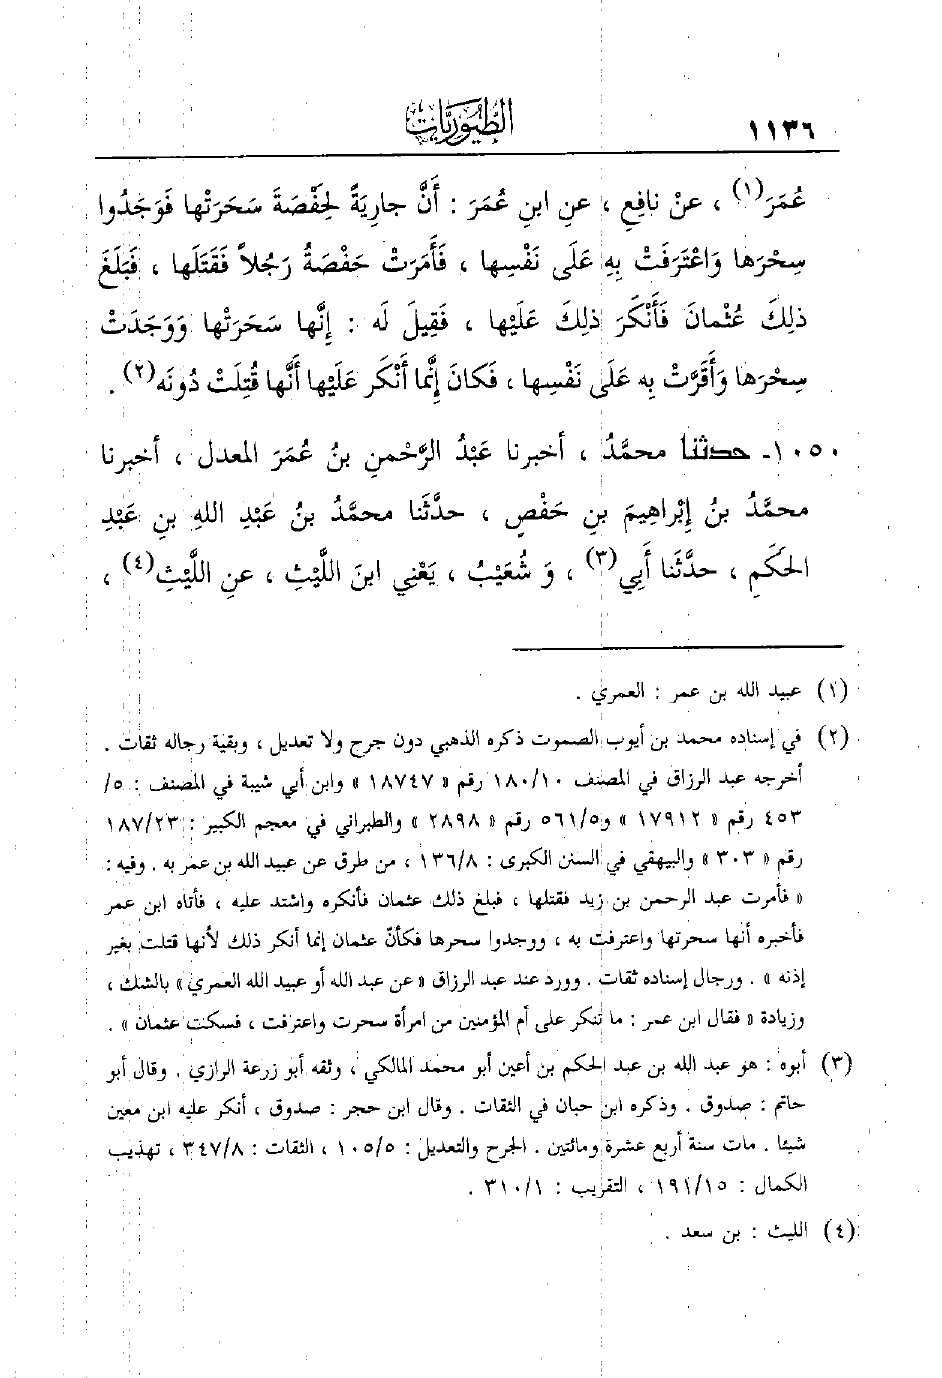 ١١٣٦
الطيوريات
عُمَرَ(١) ، عَنْ نافِعٍ ، عَنِ ابنِ عُمَرَ : أَنَّ جارِيَةً لِحَفْصَةَ سَحَرَتْها فَوَجَدُوا
سِحْرَها وَاعْتَرَفَتْ بِهِ عَلَى نَفْسِها ، فَأَمَرَتْ حَفْصَةُ رَجُلاً فَقَتَلَها ، فَبَلَغَ
ذلِكَ عُثْمانَ فَأَنْكَرَ ذلِكَ عَلَيْها ، فَقِيلَ لَه : إِنَّها سَحَرَتْها وَوَجَدَتْ
سِحْرَها وَأَقَرَّتْ بِه عَلَى نَفْسِها ، فَكانَ إِنَّما أَنْكَر عَلَيْها أَنَّها قُتِلَتْ دُونَه(٢) .
١٠٥٠- حدثنا محمَّدٌ ، أخبرنا عَبْدُ الرَّحْمنِ بنُ عُمَرَ المعدل ، أخبرنا
محمَّدُ بنُ إِبْراهِيمَ بنِ حَفْصٍ ، حدَّثَنا محمَّدُ بنُ عَبْدِ اللهِ بنِ عَبْدِ
الحَكَمِ ، حدَّثَنا أَبِي(٣) ، وَ شُعَيْبُ ، يَعْنِي ابنَ اللَّيْثِ ، عَنِ اللَّيْثِ(٤) ،
(١) عبيد الله بن عمر : العمري .
(٢) في إسناده محمد بن أيوب الصموت ذكره الذهبي دون جرح ولا تعديل ، وبقية رجاله ثقات .
أخرجه عبد الرزاق في المصنف ١٨٠/١٠ رقم « ١٨٧٤٧ » وابن أبي شيبة في المصنف : ٥/
٤٥٣ رقم « ١٧٩١٢ » و٥٦١/٥ رقم « ٢٨٩٨ » والطبراني في معجم الكبير : ١٨٧/٢٣
رقم « ٣٠٣ » والبيهقي في السنن الكبرى : ١٣٦/٨ ، من طرق عن عبيد الله بن عمر به . وفيه :
« فأمرت عبد الرحمن بن زيد فقتلها ، فبلغ ذلك عثمان فأنكره واشتد عليه ، فأتاه ابن عمر
فأخبره أنها سحرتها واعترفت به ، ووجدوا سحرها فكأنّ عثمان إنما أنكر ذلك لأنها قتلت بغير
إذنه » . ورجال إسناده ثقات . وورد عند عبد الرزاق « عن عبد الله أو عبيد الله العمري » بالشك ،
وزيادة « فقال ابن عمر : ما تنكر على أم المؤمنين من امرأة سحرت واعترفت ، فسكت عثمان » .
(٣) أبوه : هو عبد الله بن عبد الحكم بن أعين أبو محمد المالكي ، وثقه أبو زرعة الرازي . وقال أبو
حاتم : صدوق . وذكره ابن حبان في الثقات . وقال ابن حجر : صدوق ، أنكر عليه ابن معين
شيئا . مات سنة أربع عشرة ومائتين . الجرح والتعديل : ١٠٥/٥ ، الثقات : ٣٤٧/٨ ، تهذيب
الكمال : ١٩١/١٥ ، التقريب : ٣١٠/١ .
(٤) الليث : بن سعد .